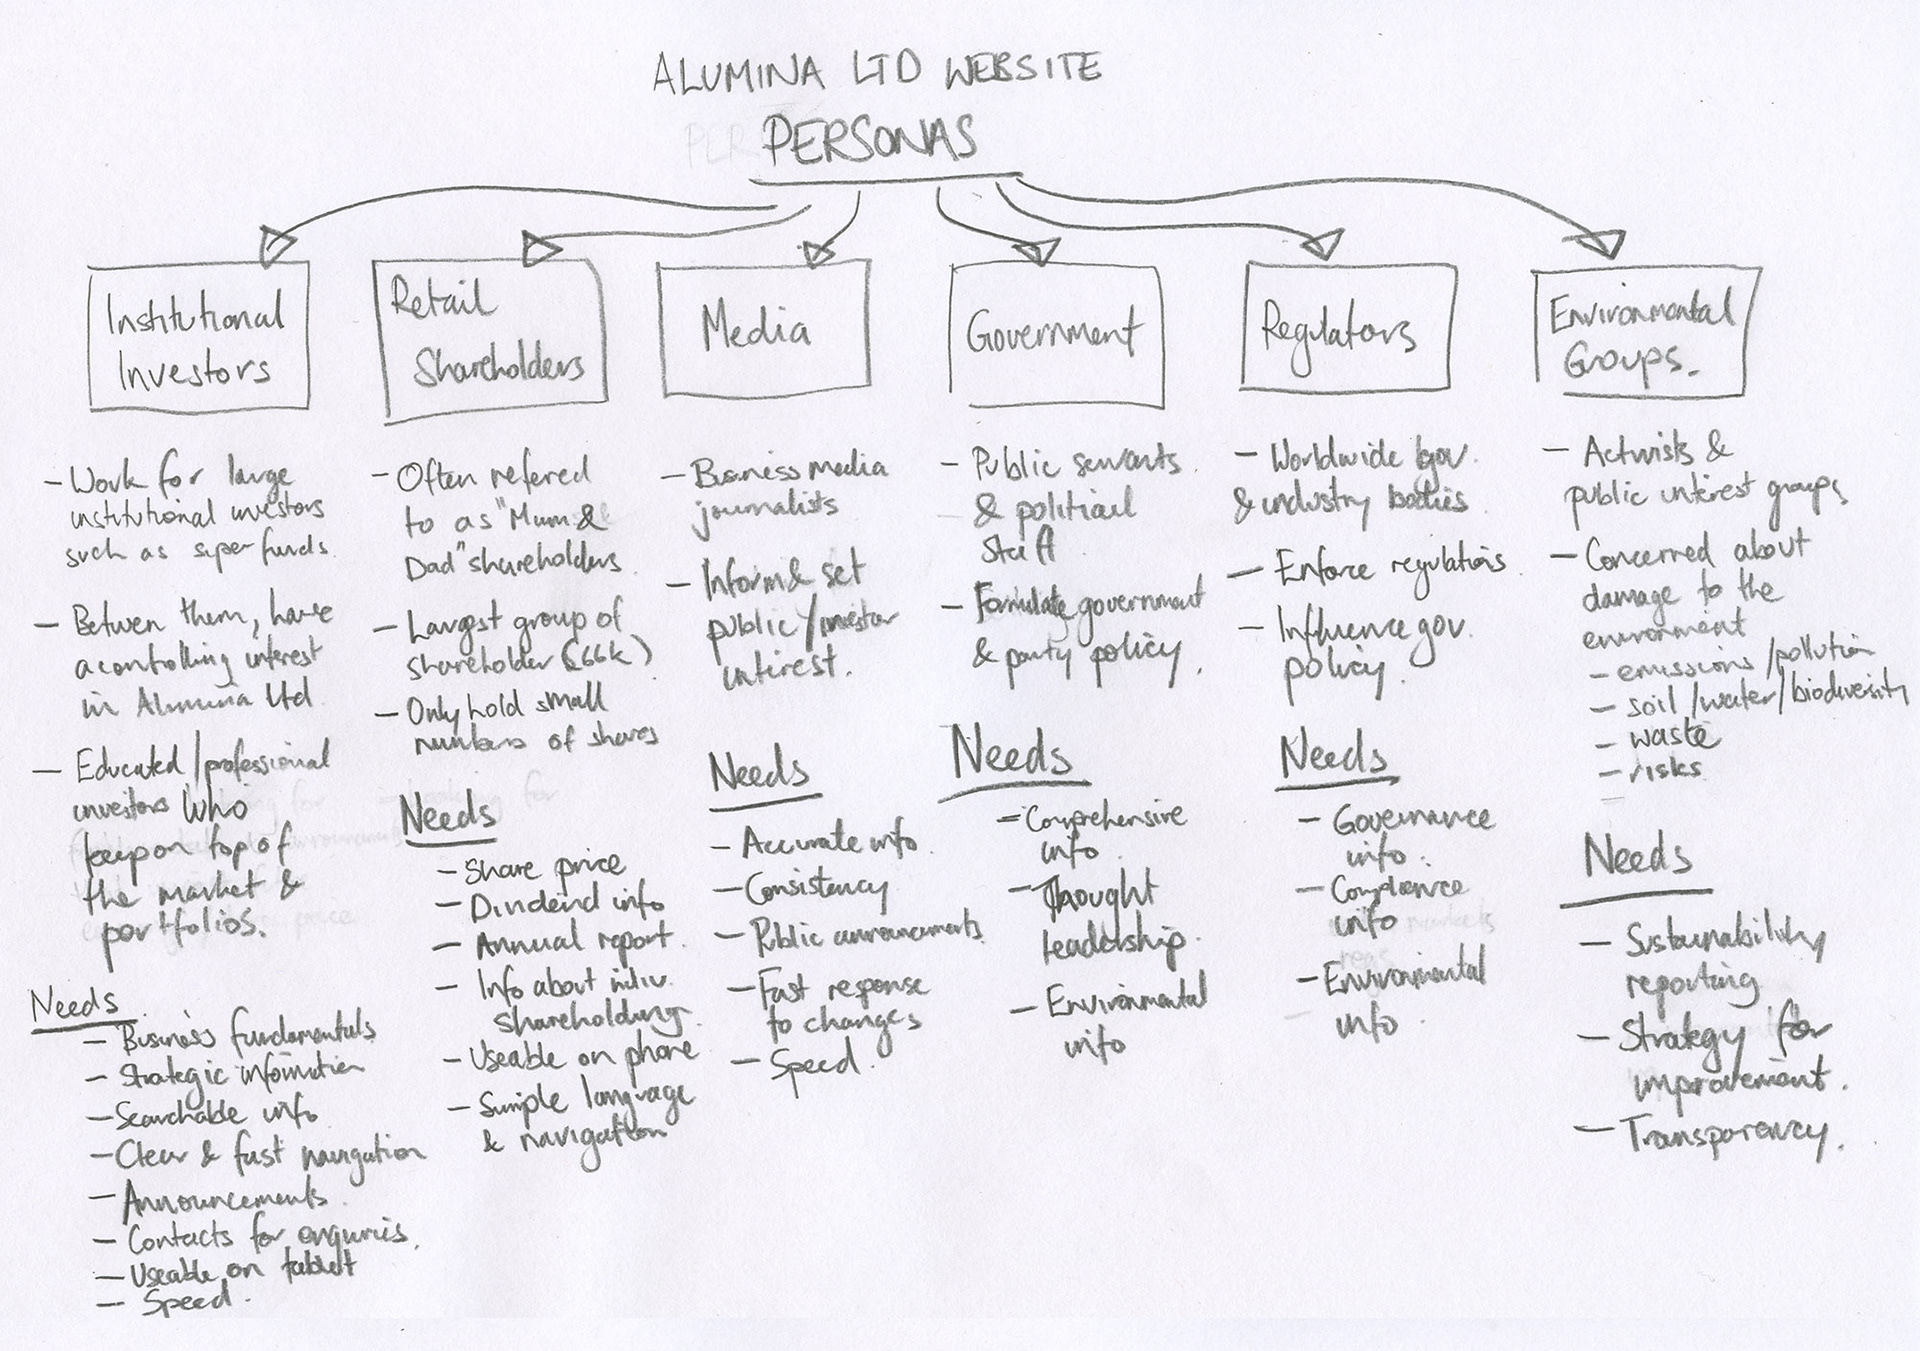 ALUMINA LTD WEBSITE
PERSONAS
Institutional
Investors
- Work for large
institutional investors
such as super funds.
- Betwen them, have
a controlling interest
in Alumina Ltd.
- Educated/professional
investors who
keep on top of
the market &
portfolios.
Needs
- Business fundamentals
- Strategic information
- Searchable info
- Clear & fast navigation
- Announcements.
- Contacts for enquiries.
- Useable on tablet
- Speed.
Retail
Shareholders
- Often refered
to as "Mum &
Dad" shareholders.
- Largest group of
shareholder (66k)
- Only hold small
numbers of shares
Needs
- Share price
- Dividend info
- Annual report.
- Info about indiv.
shareholding.
- Useable on phone
- Simple language
& navigation
Media
- Business media
journalists
- Inform & set
public/investor
interest.
Needs
- Accurate info.
- Consistency
- Public announcements
- Fast response
to changes
- Speed.
Government
- Public servants
& political
staff
- Formulate government
& party policy.
Needs
- Comprehensive
info.
- Thought
leadership.
- Environmental
info
Regulators
- Worldwide gov.
& industry bodies
- Enforce regulations.
- Influence gov.
policy.
Needs
- Governance
info.
- Compliance
info
- Environmental
info.
Environmental
Groups.
- Activists &
public interest groups
- Concerned about
damage to the
environment
- emissions/pollution
- soil/water/biodiversity
- waste
- risks
Needs
- Sustainability
reporting
- Strategy for
improvement.
- Transparency.